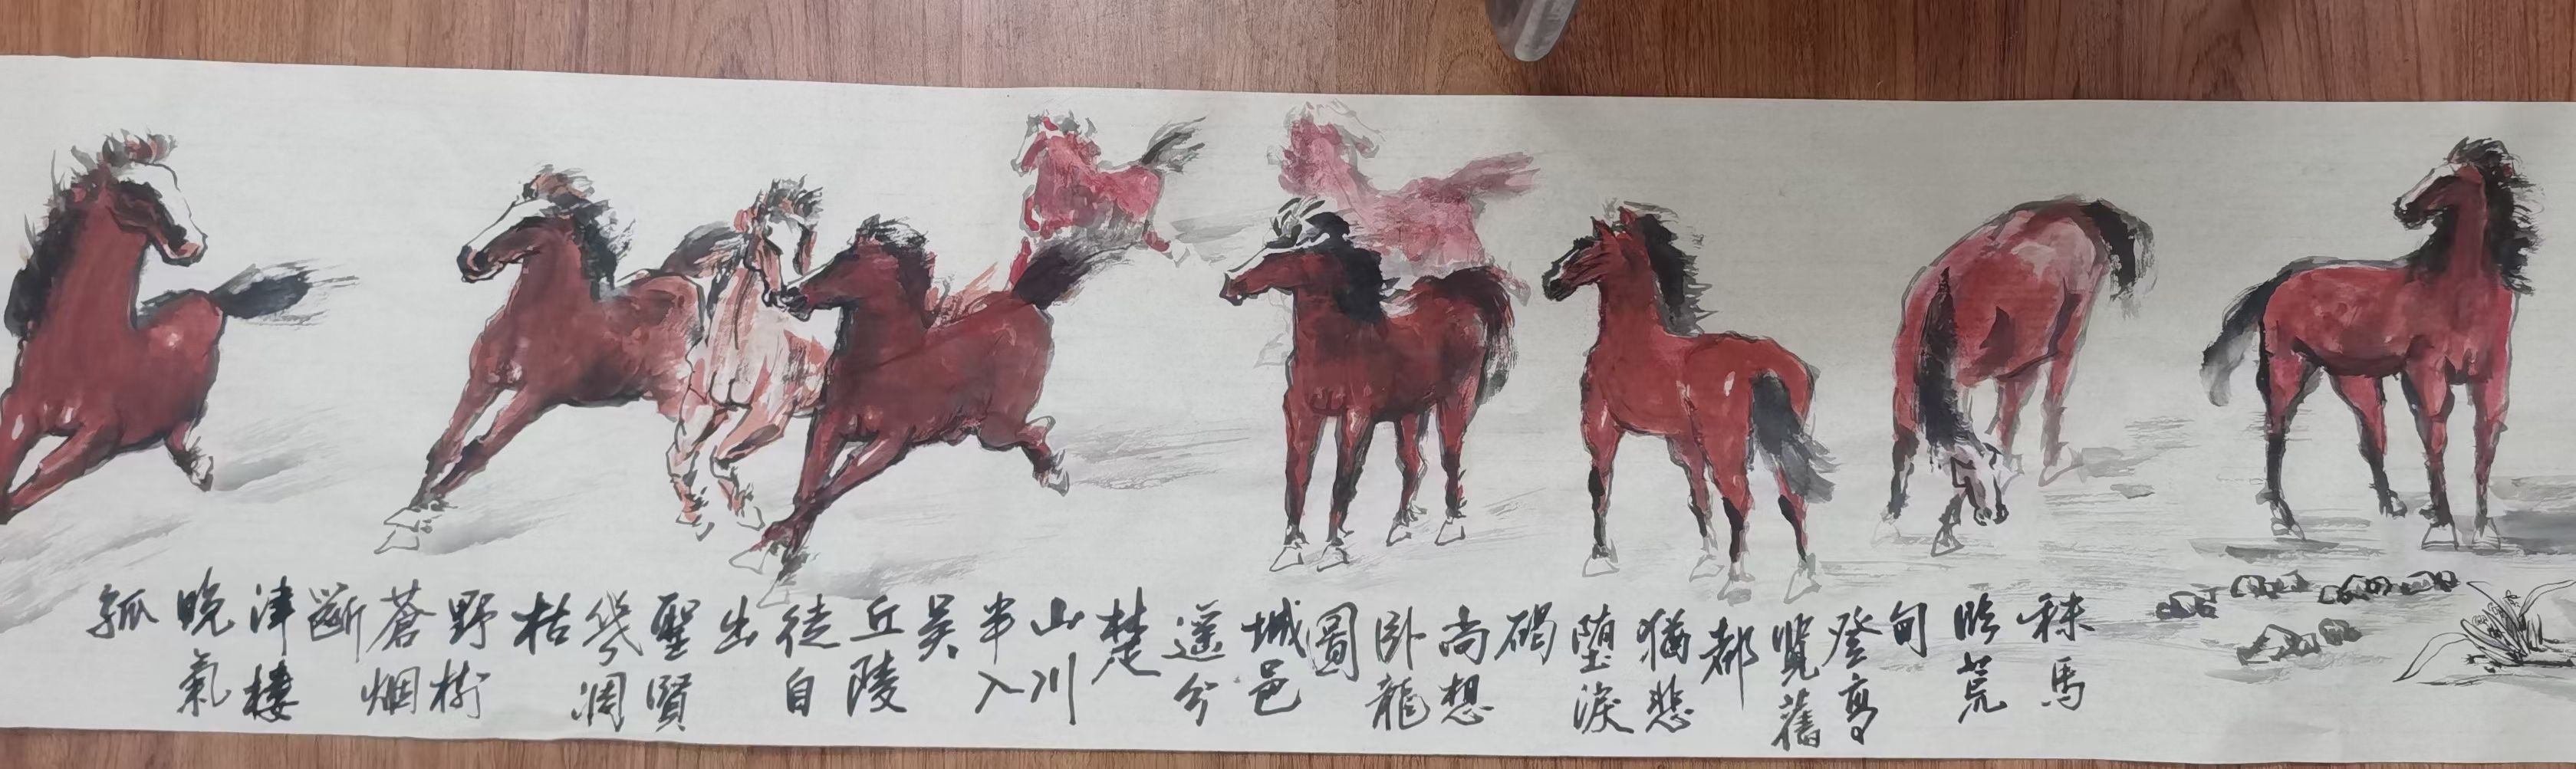 秣馬
临荒
甸
登高
覽舊
都
猶悲
堕淚
碣
尚想
卧龍
圖
城邑
遥分
楚
山川
半入
吴
丘陵
徒自
出
聖賢
幾凋
枯
野樹
蒼烟
斷
津樓
晚氣
孤